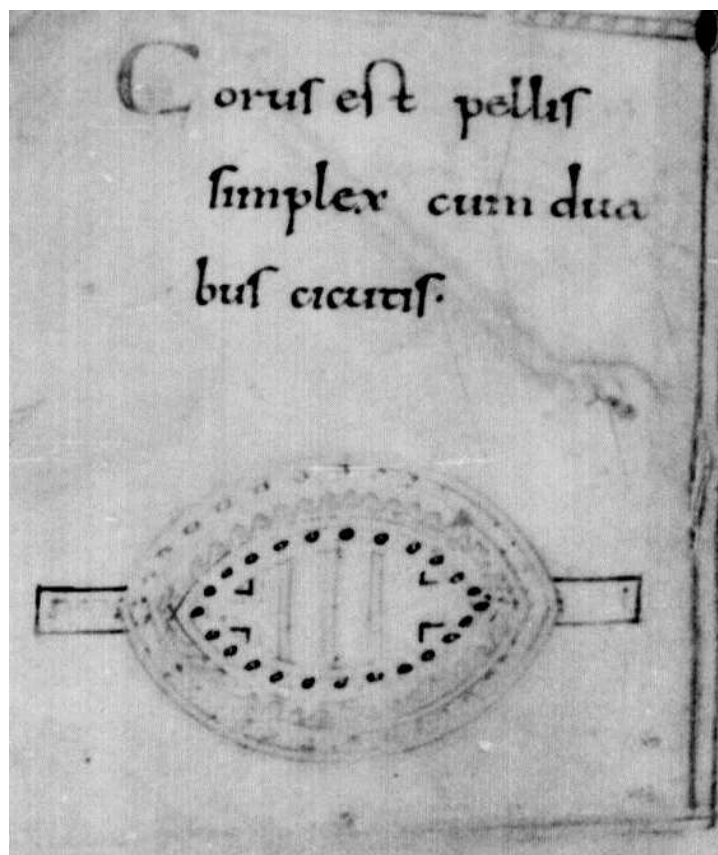 Corus est pellis
simplex cum dua
bus cicutis.